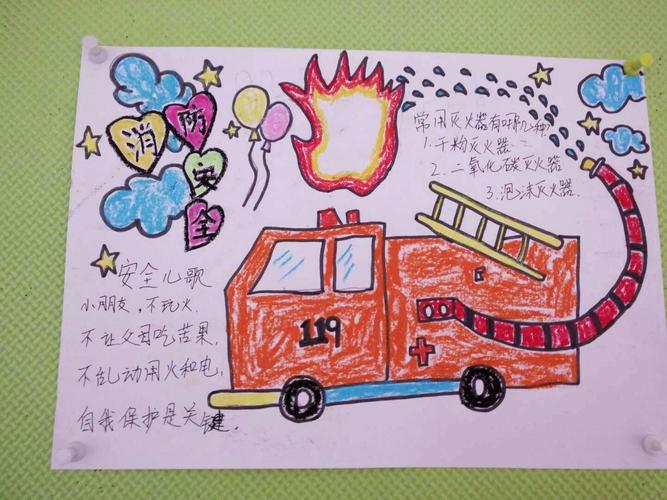 消防安全
常用灭火器有哪几种?
1.干粉灭火器
2.二氧化碳灭火器
3.泡沫灭火器.
安全儿歌
小朋友,不玩火.
不让父母吃苦果,
不乱动用火和电,
自我保护是关键.
119